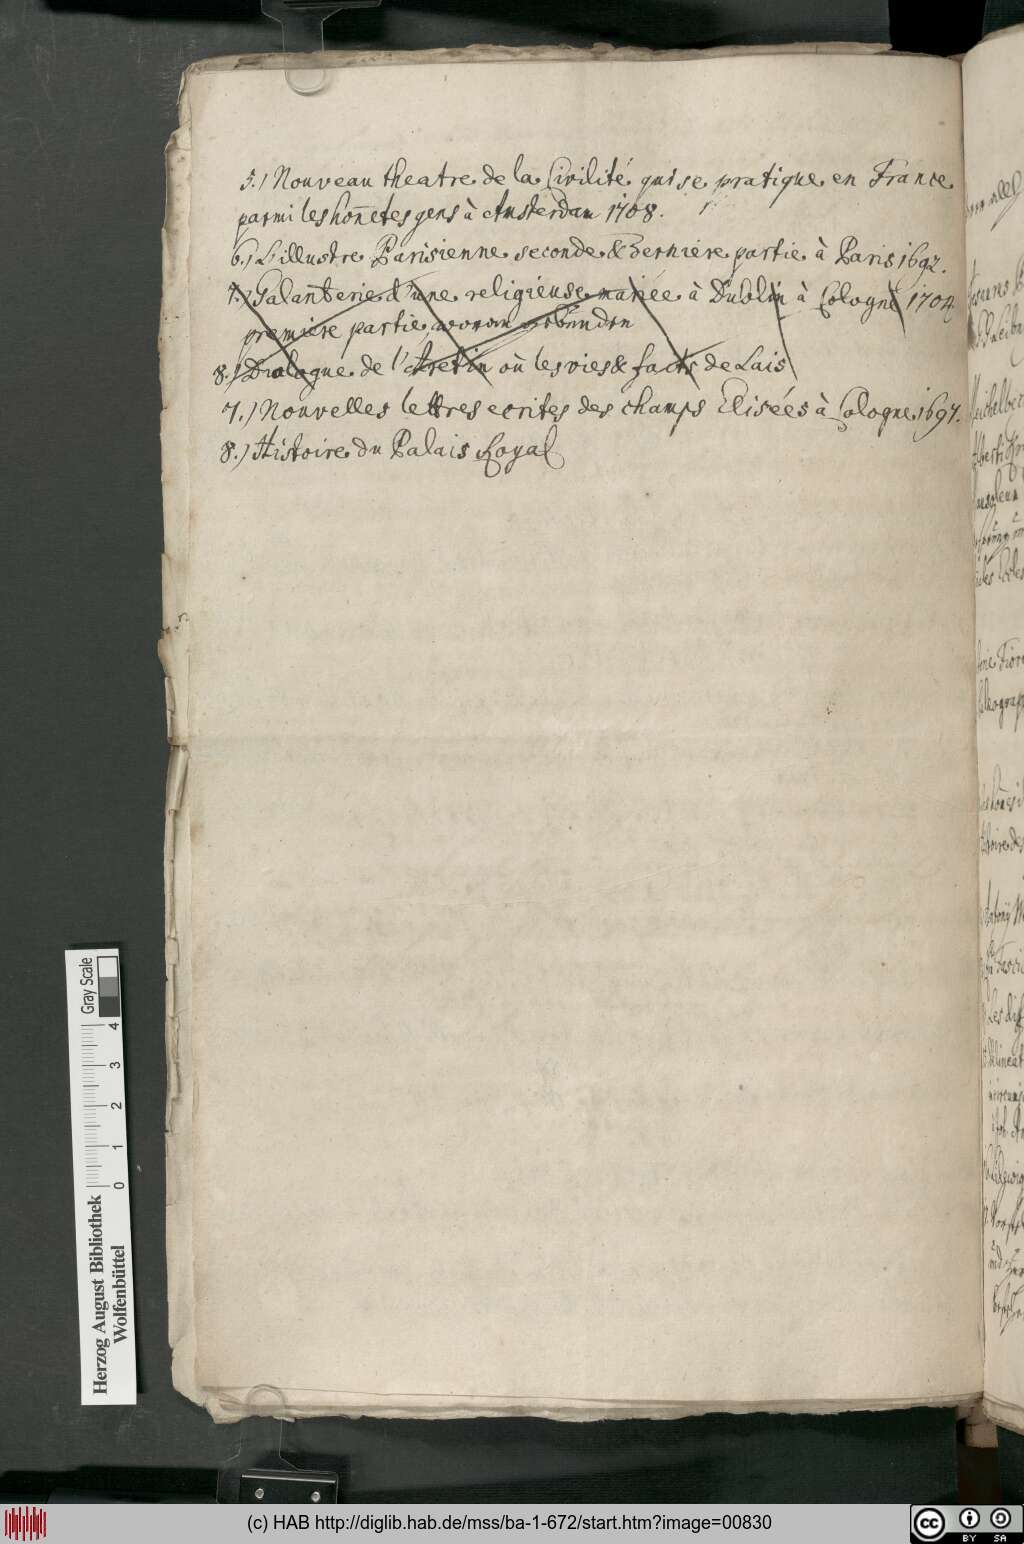 5.) Nouveau theatre de la Civilité qui se pratique en France
parmi les hon̄etes gens à Amsterdam 1708.
6.) L'illustre Parisienne seconde & derniere partie à Paris 1692.
7.) Galanterie d'une religieuse mariée à Dublin à Cologne 1704.
premiere partie woran gebunden
8.) Dialogue de l'Aretin où les vies & facts de Lais
7.) Nouvelles lettres ecrites des champs Elisées à Cologne 1697.
8.) Histoire du Palais Royal
Gray Scale
0 1 2 3 4
Herzog August Bibliothek
Wolfenbüttel
(c) HAB http://diglib.hab.de/mss/ba-1-672/start.htm?image=00830
cc BY SA